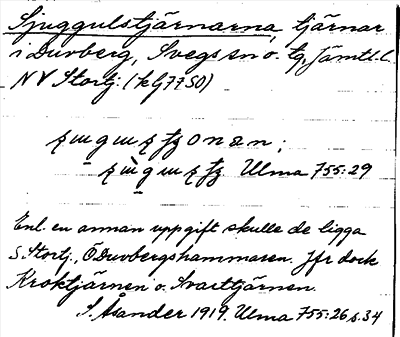 Sjuggulstjärnarna, tjärnar
i Duvberg, Svegs sn o. tg, Jämtl. l.
NV Stortj. (kG7750)
Ulma 755:29
Enl. en annan uppgift skulle de ligga
S Stortj., Ö Duvbergshammaren. Jfr dock
Kroktjärnen o. Svarttjärnen.
S. Åsander 1919. Ulma 755:26 s. 34